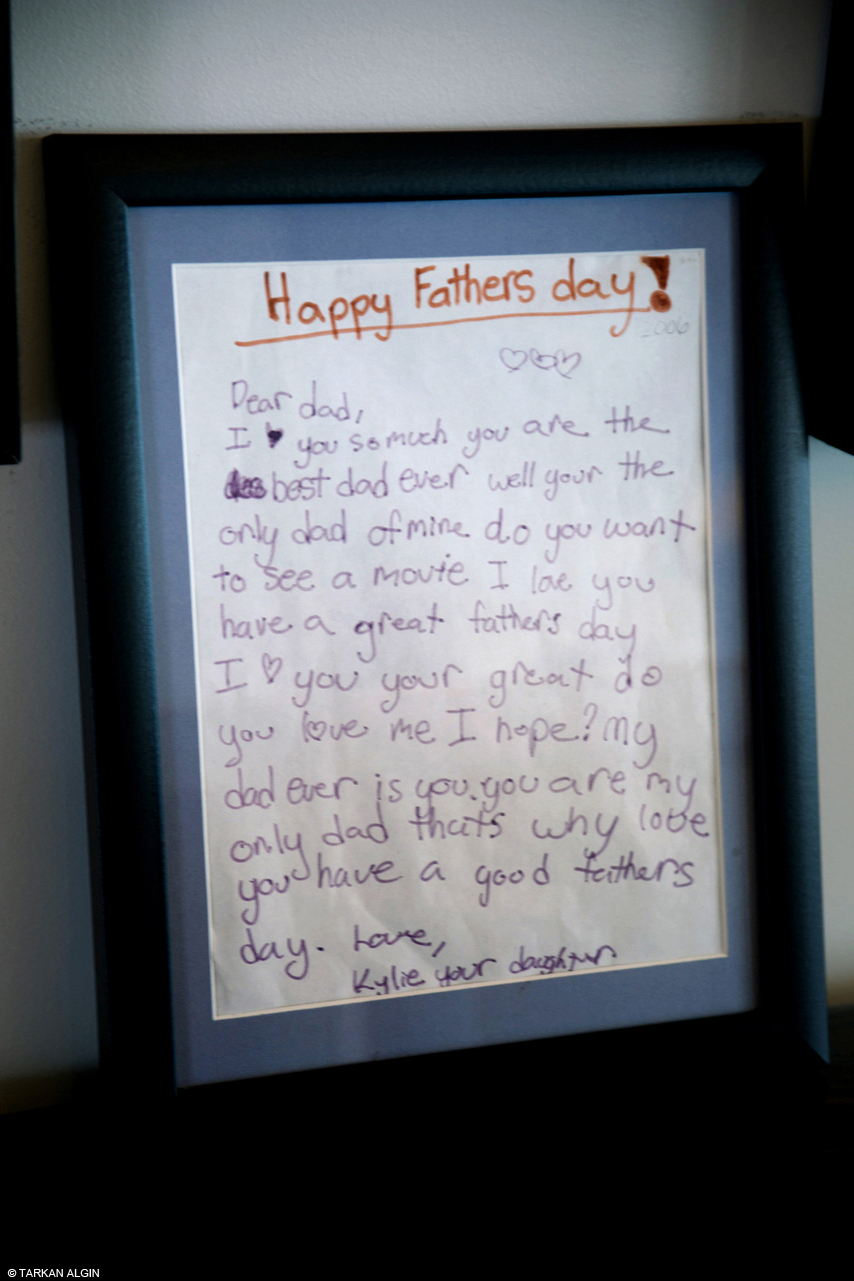 Happy Fathers day!
2006
Dear dad,
I ♥ you so much you are the
best dad ever well your the
only dad of mine do you want
to see a movie I love you
have a great fathers day
I ♡ you your great do
you love me I hope? my
dad ever is you. you are my
only dad that's why love
you have a good fathers
day. Love,
Kylie your daughter
© TARKAN ALGIN